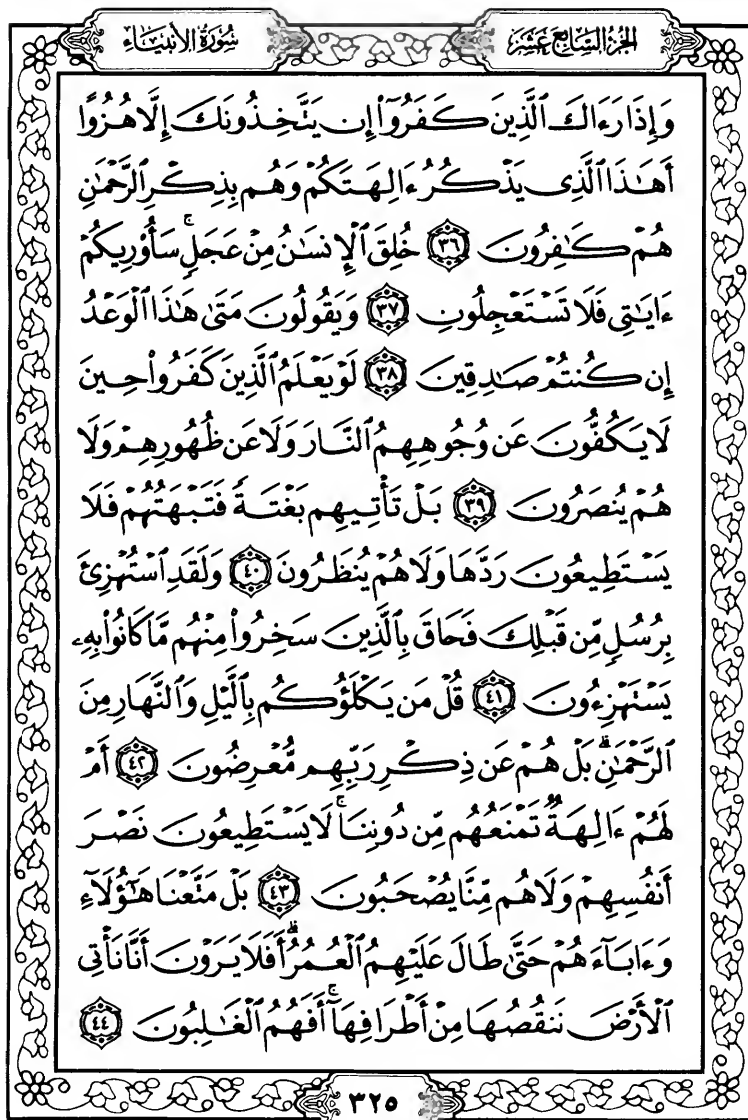 الجزء السابع عشر
سورة الأنبياء
وَإِذَا رَءَاكَ ٱلَّذِينَ كَفَرُوٓا۟ إِن يَتَّخِذُونَكَ إِلَّا هُزُوًا
أَهَٰذَا ٱلَّذِى يَذْكُرُ ءَالِهَتَكُمْ وَهُم بِذِكْرِ ٱلرَّحْمَٰنِ
هُمْ كَٰفِرُونَ ٣٦ خُلِقَ ٱلْإِنسَٰنُ مِنْ عَجَلٍ ۚ سَأُو۟رِيكُمْ
ءَايَٰتِى فَلَا تَسْتَعْجِلُونِ ٣٧ وَيَقُولُونَ مَتَىٰ هَٰذَا ٱلْوَعْدُ
إِن كُنتُمْ صَٰدِقِينَ ٣٨ لَوْ يَعْلَمُ ٱلَّذِينَ كَفَرُوا۟ حِينَ
لَا يَكُفُّونَ عَن وُجُوهِهِمُ ٱلنَّارَ وَلَا عَن ظُهُورِهِمْ وَلَا
هُمْ يُنصَرُونَ ٣٩ بَلْ تَأْتِيهِم بَغْتَةً فَتَبْهَتُهُمْ فَلَا
يَسْتَطِيعُونَ رَدَّهَا وَلَا هُمْ يُنظَرُونَ ٤٠ وَلَقَدِ ٱسْتُهْزِئَ
بِرُسُلٍ مِّن قَبْلِكَ فَحَاقَ بِٱلَّذِينَ سَخِرُوا۟ مِنْهُم مَّا كَانُوا۟ بِهِۦ
يَسْتَهْزِءُونَ ٤١ قُلْ مَن يَكْلَؤُكُم بِٱلَّيْلِ وَٱلنَّهَارِ مِنَ
ٱلرَّحْمَٰنِ ۗ بَلْ هُمْ عَن ذِكْرِ رَبِّهِم مُّعْرِضُونَ ٤٢ أَمْ
لَهُمْ ءَالِهَةٌ تَمْنَعُهُم مِّن دُونِنَا ۚ لَا يَسْتَطِيعُونَ نَصْرَ
أَنفُسِهِمْ وَلَا هُم مِّنَّا يُصْحَبُونَ ٤٣ بَلْ مَتَّعْنَا هَٰٓؤُلَآءِ
وَءَابَآءَهُمْ حَتَّىٰ طَالَ عَلَيْهِمُ ٱلْعُمُرُ ۗ أَفَلَا يَرَوْنَ أَنَّا نَأْتِى
ٱلْأَرْضَ نَنقُصُهَا مِنْ أَطْرَافِهَآ ۚ أَفَهُمُ ٱلْغَٰلِبُونَ ٤٤
٣٢٥